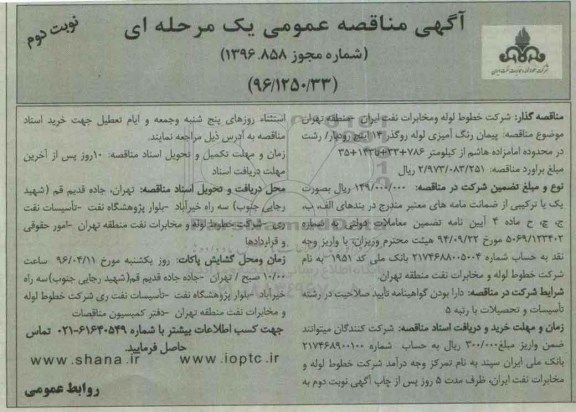 آگهی مناقصه عمومی یک مرحله ای
نوبت دوم
(شماره مجوز ۱۳۹۶.۸۵۸)
(۹۶/۱۲۵۰/۳۳)
مناقصه گذار: شرکت خطوط لوله ومخابرات نفت ایران -منطقه تهران
موضوع مناقصه: پیمان رنگ آمیزی لوله روگذر ۱۴ اینچ رودبار/ رشت
در محدوده امامزاده هاشم از کیلومتر
مبلغ برآورد مناقصه: ۲/۹۷۳/۰۸۳/۲۵۱ ریال
نوع و مبلغ تضمین شرکت در مناقصه: ۱۴۹/۰۰۰/۰۰۰ ریال بصورت
یک یا ترکیبی از ضمانت نامه های معتبر مندرج در بندهای الف، ب،
ج، چ، ح ماده ۴ آیین نامه تضمین معاملات دولتی به شماره
مورخ ۹۴/۰۹/۲۲ هیئت محترم وزیران، یا واریز وجه
نقد به حساب شماره ۲۱۷۴۶۸۸۰۰۵۰۰۴ بانک ملی کد ۱۹۵۱ به نام
شرکت خطوط لوله و مخابرات نفت منطقه تهران
شرایط شرکت در مناقصه: دارا بودن گواهینامه تأیید صلاحیت در رشته
تأسیسات و تجهیلات با رتبه ۵
زمان و مهلت خرید و دریافت اسناد مناقصه: شرکت کنندگان میتوانند
ضمن واریز مبلغ۳۰۰/۰۰۰ ریال به حساب شماره ۲۱۷۴۶۸۹۰۰۱۰۰
بانک ملی ایران سیبد به نام تمرکز وجه درآمد شرکت خطوط لوله و
مخابرات نفت ایران، ظرف مدت ۵ روز پس از چاپ آگهی نوبت دوم به
استثناء روزهای پنج شنبه وجمعه و ایام تعطیل جهت خرید اسناد
مناقصه به آدرس ذیل مراجعه نمایند.
زمان و مهلت تکمیل و تحویل اسناد مناقصه: ۱۰روز پس از آخرین
مهلت دریافت اسناد
محل دریافت و تحویل اسناد مناقصه: تهران، جاده قدیم قم (شهید
رجایی جنوب) سه راه خیرآباد -بلوار پژوهشگاه نفت -تأسیسات نفت
ری -شرکت خطوط لوله و مخابرات نفت منطقه تهران -امور حقوقی
و قراردادها
زمان ومحل گشایش پاکات: روز یکشنبه مورخ ۹۶/۰۴/۱۱ ساعت
۱۰/۰۰ صبح / تهران -جاده جاده قدیم قم(شهید رجایی جنوب)سه راه
خیرآباد -بلوار پژوهشگاه نفت -تأسیسات نفت ری شرکت خطوط لوله
و مخابرات نفت منطقه تهران -دفتر کمیسیون مناقصات
جهت کسب اطلاعات بیشتر با شماره ۶۱۶۴۰۵۴۹-۰۲۱ تماس
حاصل فرمایید.
www.shana.ir www.ioptc.ir
روابط عمومی